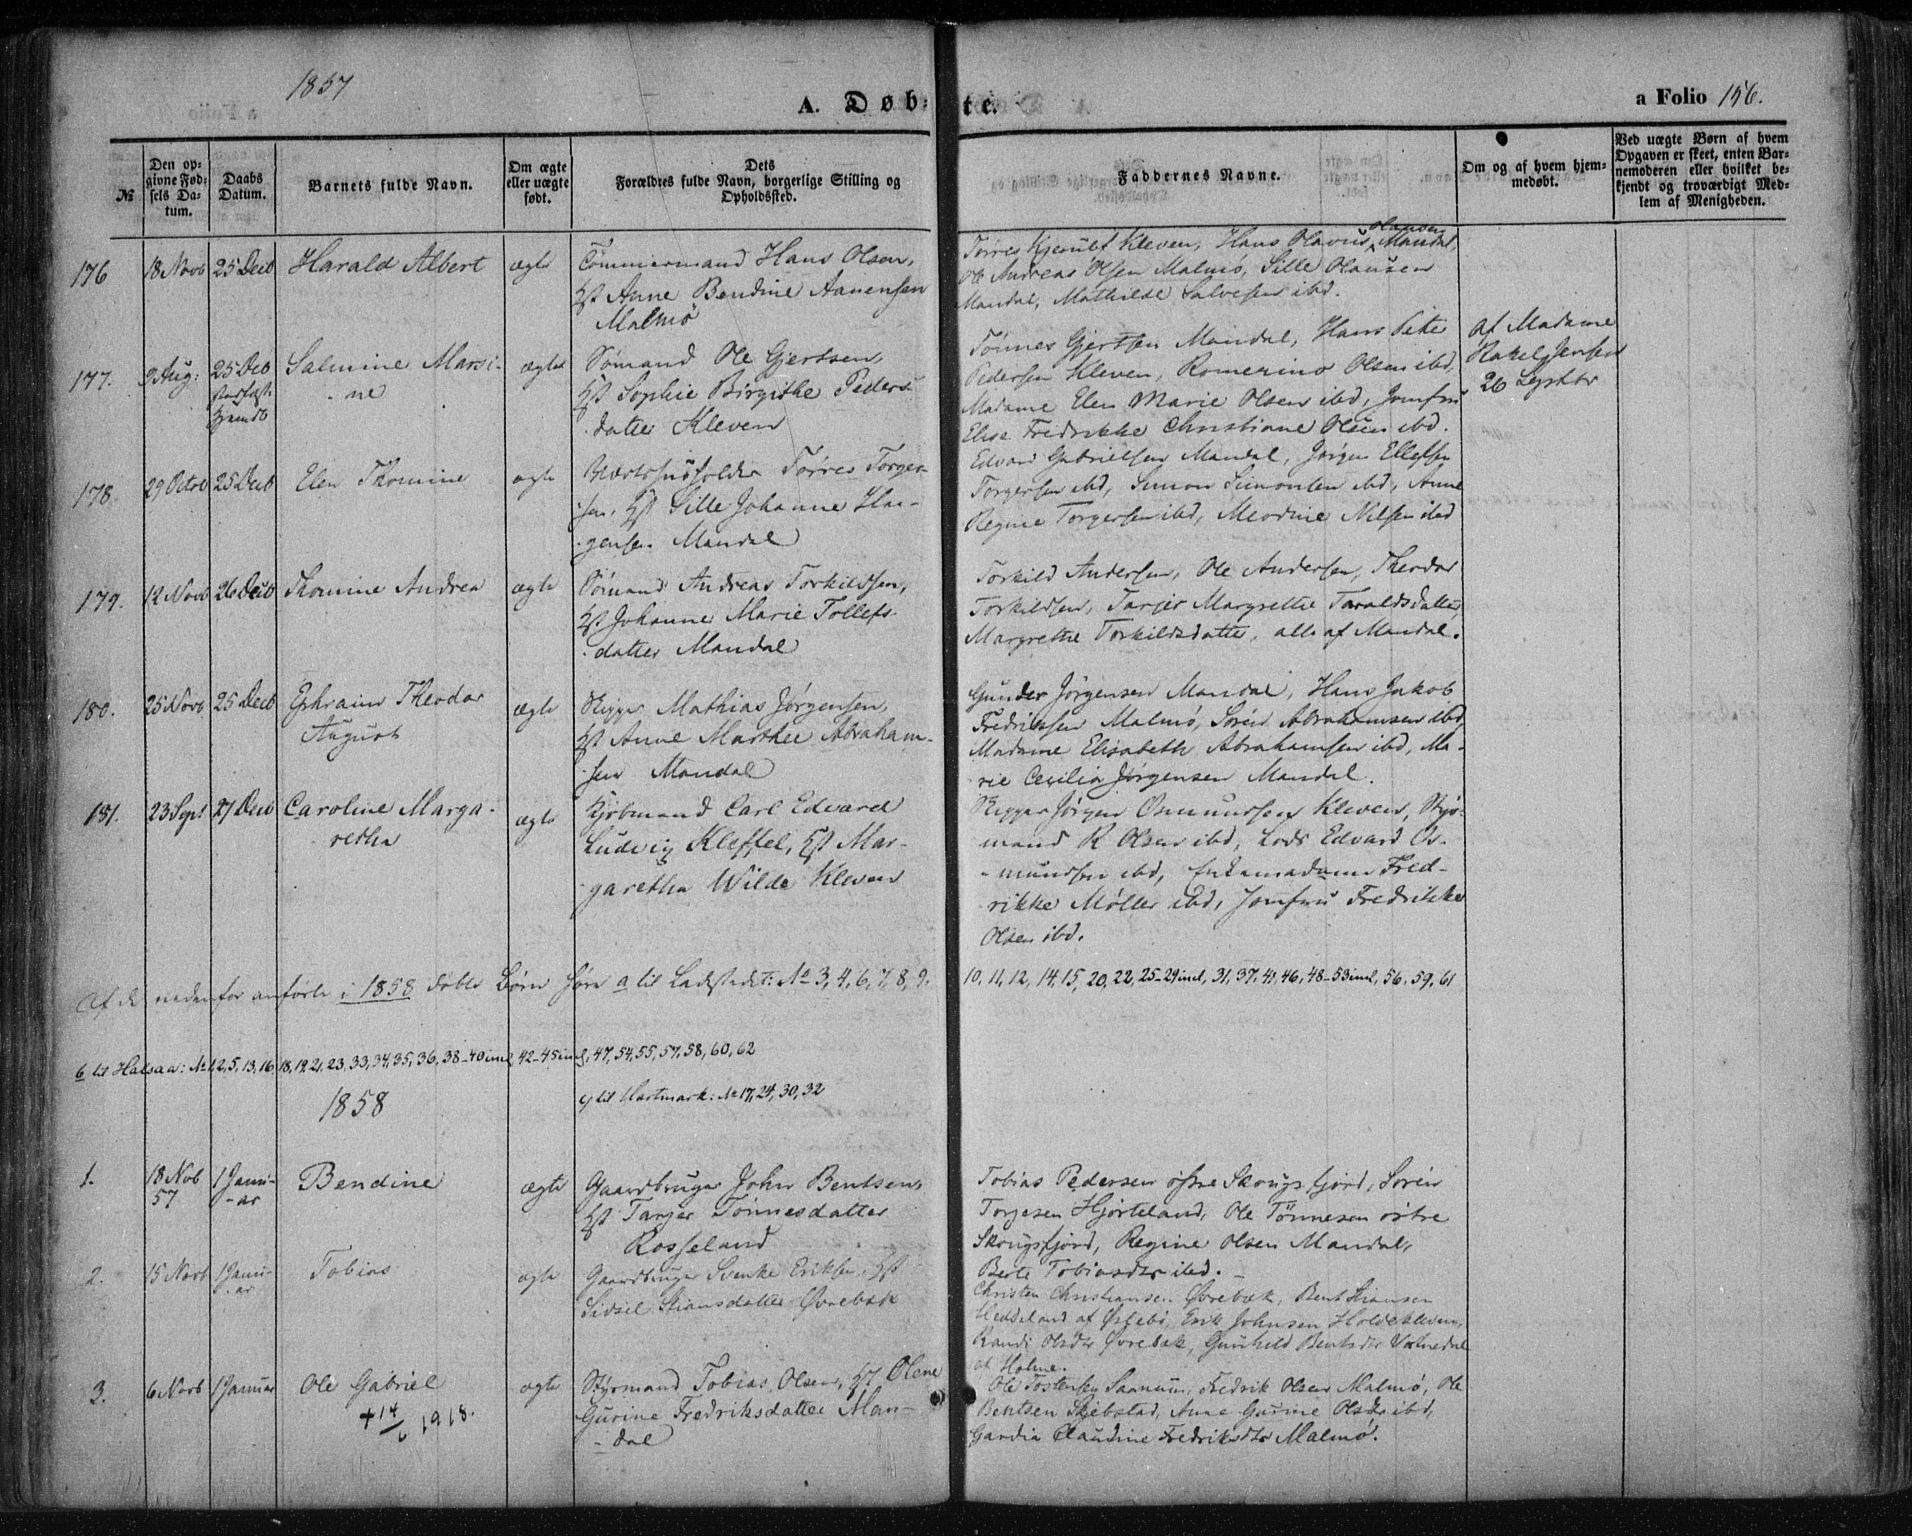 1857
A. Døbte.
a Folio 156.
№
Den opgivne Fødsels Datum.
Daabs Datum.
Barnets fulde Navn.
Om ægte eller uægte født.
Dets Forældres fulde Navn, borgerlige Stilling og Opholdssted.
Faddernes Navne.
Om og af hvem hjemmedøbt.
Ved uægte Børn af hvem Opgaven er skeet, enten Barnemoderen eller hvilket bekjendt og troværdigt Medlem af Menigheden.
176 18 Novb 25 Decb Harald Albert ægte
Tømmermand Hans Olsen,
Hst Anne Bendine Aanensen
Malmø
Tørres Kjerulf Kleven, Hans Olavus Olausen Mandal,
Ole Andreas Olsen Malmø, Sille Olausen
Mandal, Mathilde Salvesen ibd.
177. 9 Aug: 25 Dec Salmine Marsi-
ne
ægte
Sømand Ole Gjertsen,
Hst Sophie Birgithe Peders-
datter Kleven
Tønnes Gjertsen Mandal, Hans Peter
Pedersen Kleven, Romerino Olsen ibd,
Madame Elen Marie Olsen ibd, Jomfru
Elise Fredrikke Christiane Olsen ibd.
af Madame
Rakel Jensen
26 Septbr
178. 29 Octob 25 Decb Elen Thomine ægte
Værtshusholder Tørres Torger-
sen, Hst Sille Johanne Haa-
gensen Mandal
Edvard Gabrielsen Mandal, Jørgen Ellefsen
Torgersen ibd, Simon Simonsen ibd, Anne
Regine Torgersen ibd, Meodine Nilsen ibd
179. 12 Novb 26 Decb Thomine Andrea ægte
Sømand Andreas Torkildsen,
Hst Johanne Marie Tollefs-
datter Mandal
Torkild Andersen, Ole Andersen, Theodor
Torkildsen, Tarjer Margrethe Taraldsdatter
Margrethe Torkildsdatter, alle af Mandal.
180. 25 Novb 25 Decb Ephraim Theodor
August
ægte
Rigger Mathias Jørgensen,
Hst Anne Marthee Abraham-
sen Mandal
Gunder Jørgensen Mandal, Hans Jakob
Fredriksen Malmø, Søren Abrahamsen ibd,
Madame Elisabeth Abrahamsen ibd, Ma-
rie Cecilia Jørgensen Mandal.
181. 23 Sept 27 Decb Caroline Marga-
retha
ægte
Kjøbmand Carl Edvard
Ludvig Kleffel, Hst Mar-
garetha Wilde Kleven
Rigger Jørgen Osmundsen Kleven, Styr-
mand R Olsen ibd, Lods Edvard Os-
mundsen ibd, Enkemadame Fred-
rikke Møller ibd, Jomfru Fredrikke
Olsen ibd.
Af de nedenfor anførte i 1858 døbte Børn høre a til Ladstedet: № 3, 4, 6, 7, 8, 9, 10, 11, 12, 14, 15, 20, 22, 25-29 incl, 31, 37, 41, 46, 48-53 incl, 56, 59, 61
b til Halsaa: № 1, 2, 5, 13, 16, 18, 19, 21, 23, 33, 34, 35, 36, 38-40 incl, 42-45 incl, 47, 54, 55, 57, 58, 60, 62
1858
y til Hartmark: № 17, 24, 30, 32
1. 18 Nob 57 1 Janu-
ar
Bendine ægte
Gaardbruger John Bentsen,
Hst Tarjer Tønnesdatter
Rosseland
Tobias Pedersen øfre Skougsfjord, Søren
Torgesen Hjorteland, Ole Tønnesen østre
Skougsfjord, Regine Olsen Mandal,
Berte Tobiasdtr ibd.
2. 15 Novb 1 Janu-
ar
Tobias ægte
Gaardbruger Svenke Eriksen, Hst
Sidsel Stiansdatter Øvrebøk
Christen Christiansen Øvrebøk, Bent Stiansen
Heddeland af Øslebø, Erik Johnsen Holdekleven,
Randi Olsdtr Øvrebøk, Gunhild Bentsdtr
af Holme.
3. 6 Novb 1 Januar Ole Gabriel ægte
+ 14/6 1918.
Styrmand Tobias Olsen, Hst Olene
Gurine Fredriksdatter Man-
dal
Ole Tostensen Saanum, Fredrik Olsen Malmø, Ole
Bentsen Skjebstad, Anne Gurine Olsdtr ibd,
Gardia Claudine Fredriksdtr Malmø.